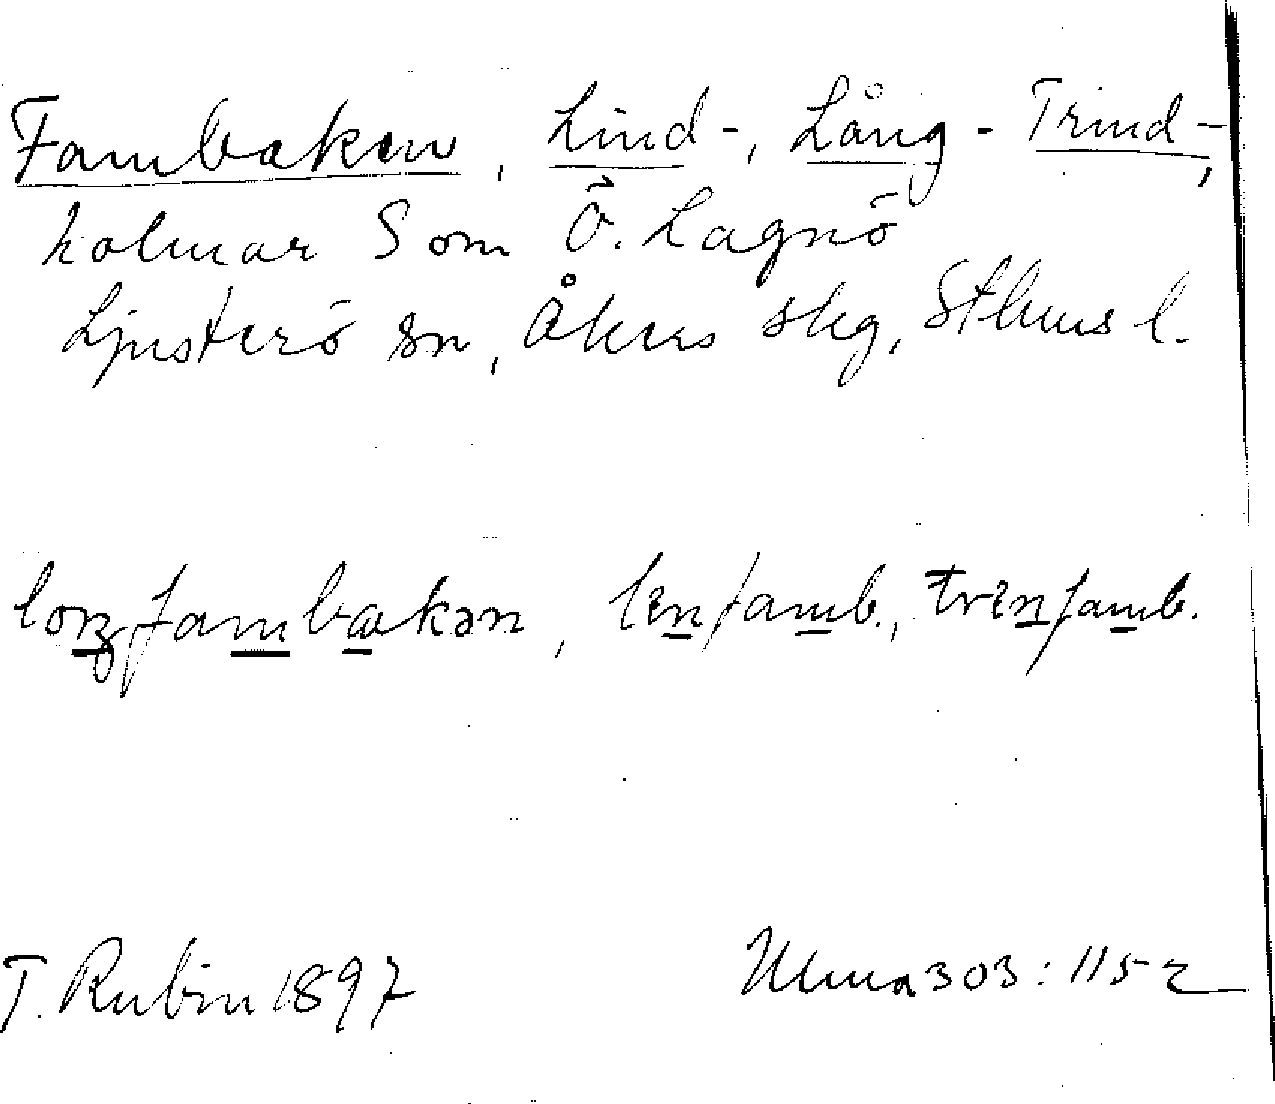 Fambaken, Lind-, Lång- Trind-,
holmar S om Ö. Lagnö
Ljusterö sn, Åkers skg, Sthms l.
loŋfambakən, lenfamb., trenfamb.
T. Rubin 1897 Ulma 303:115 2